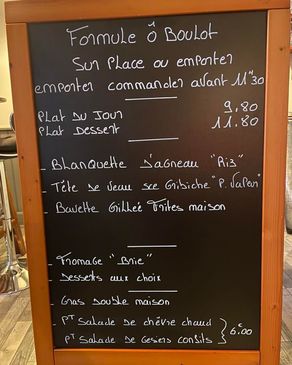 Formule Ô Boulot
Sur Place ou emporter
emporter commander avant 11H30
Plat Du Jour 9.80
Plat Dessert 11.80
- Blanquette D'agneau "Riz"
- Tête de Veau sce Gribiche "P. Vapeur"
- Bavette Grillée Frites maison
- Fromage "Brie"
- Desserts aux choix
- Gras Double maison
- PT Salade de chèvre chaud
- PT Salade de Gesiers confits } 6€00